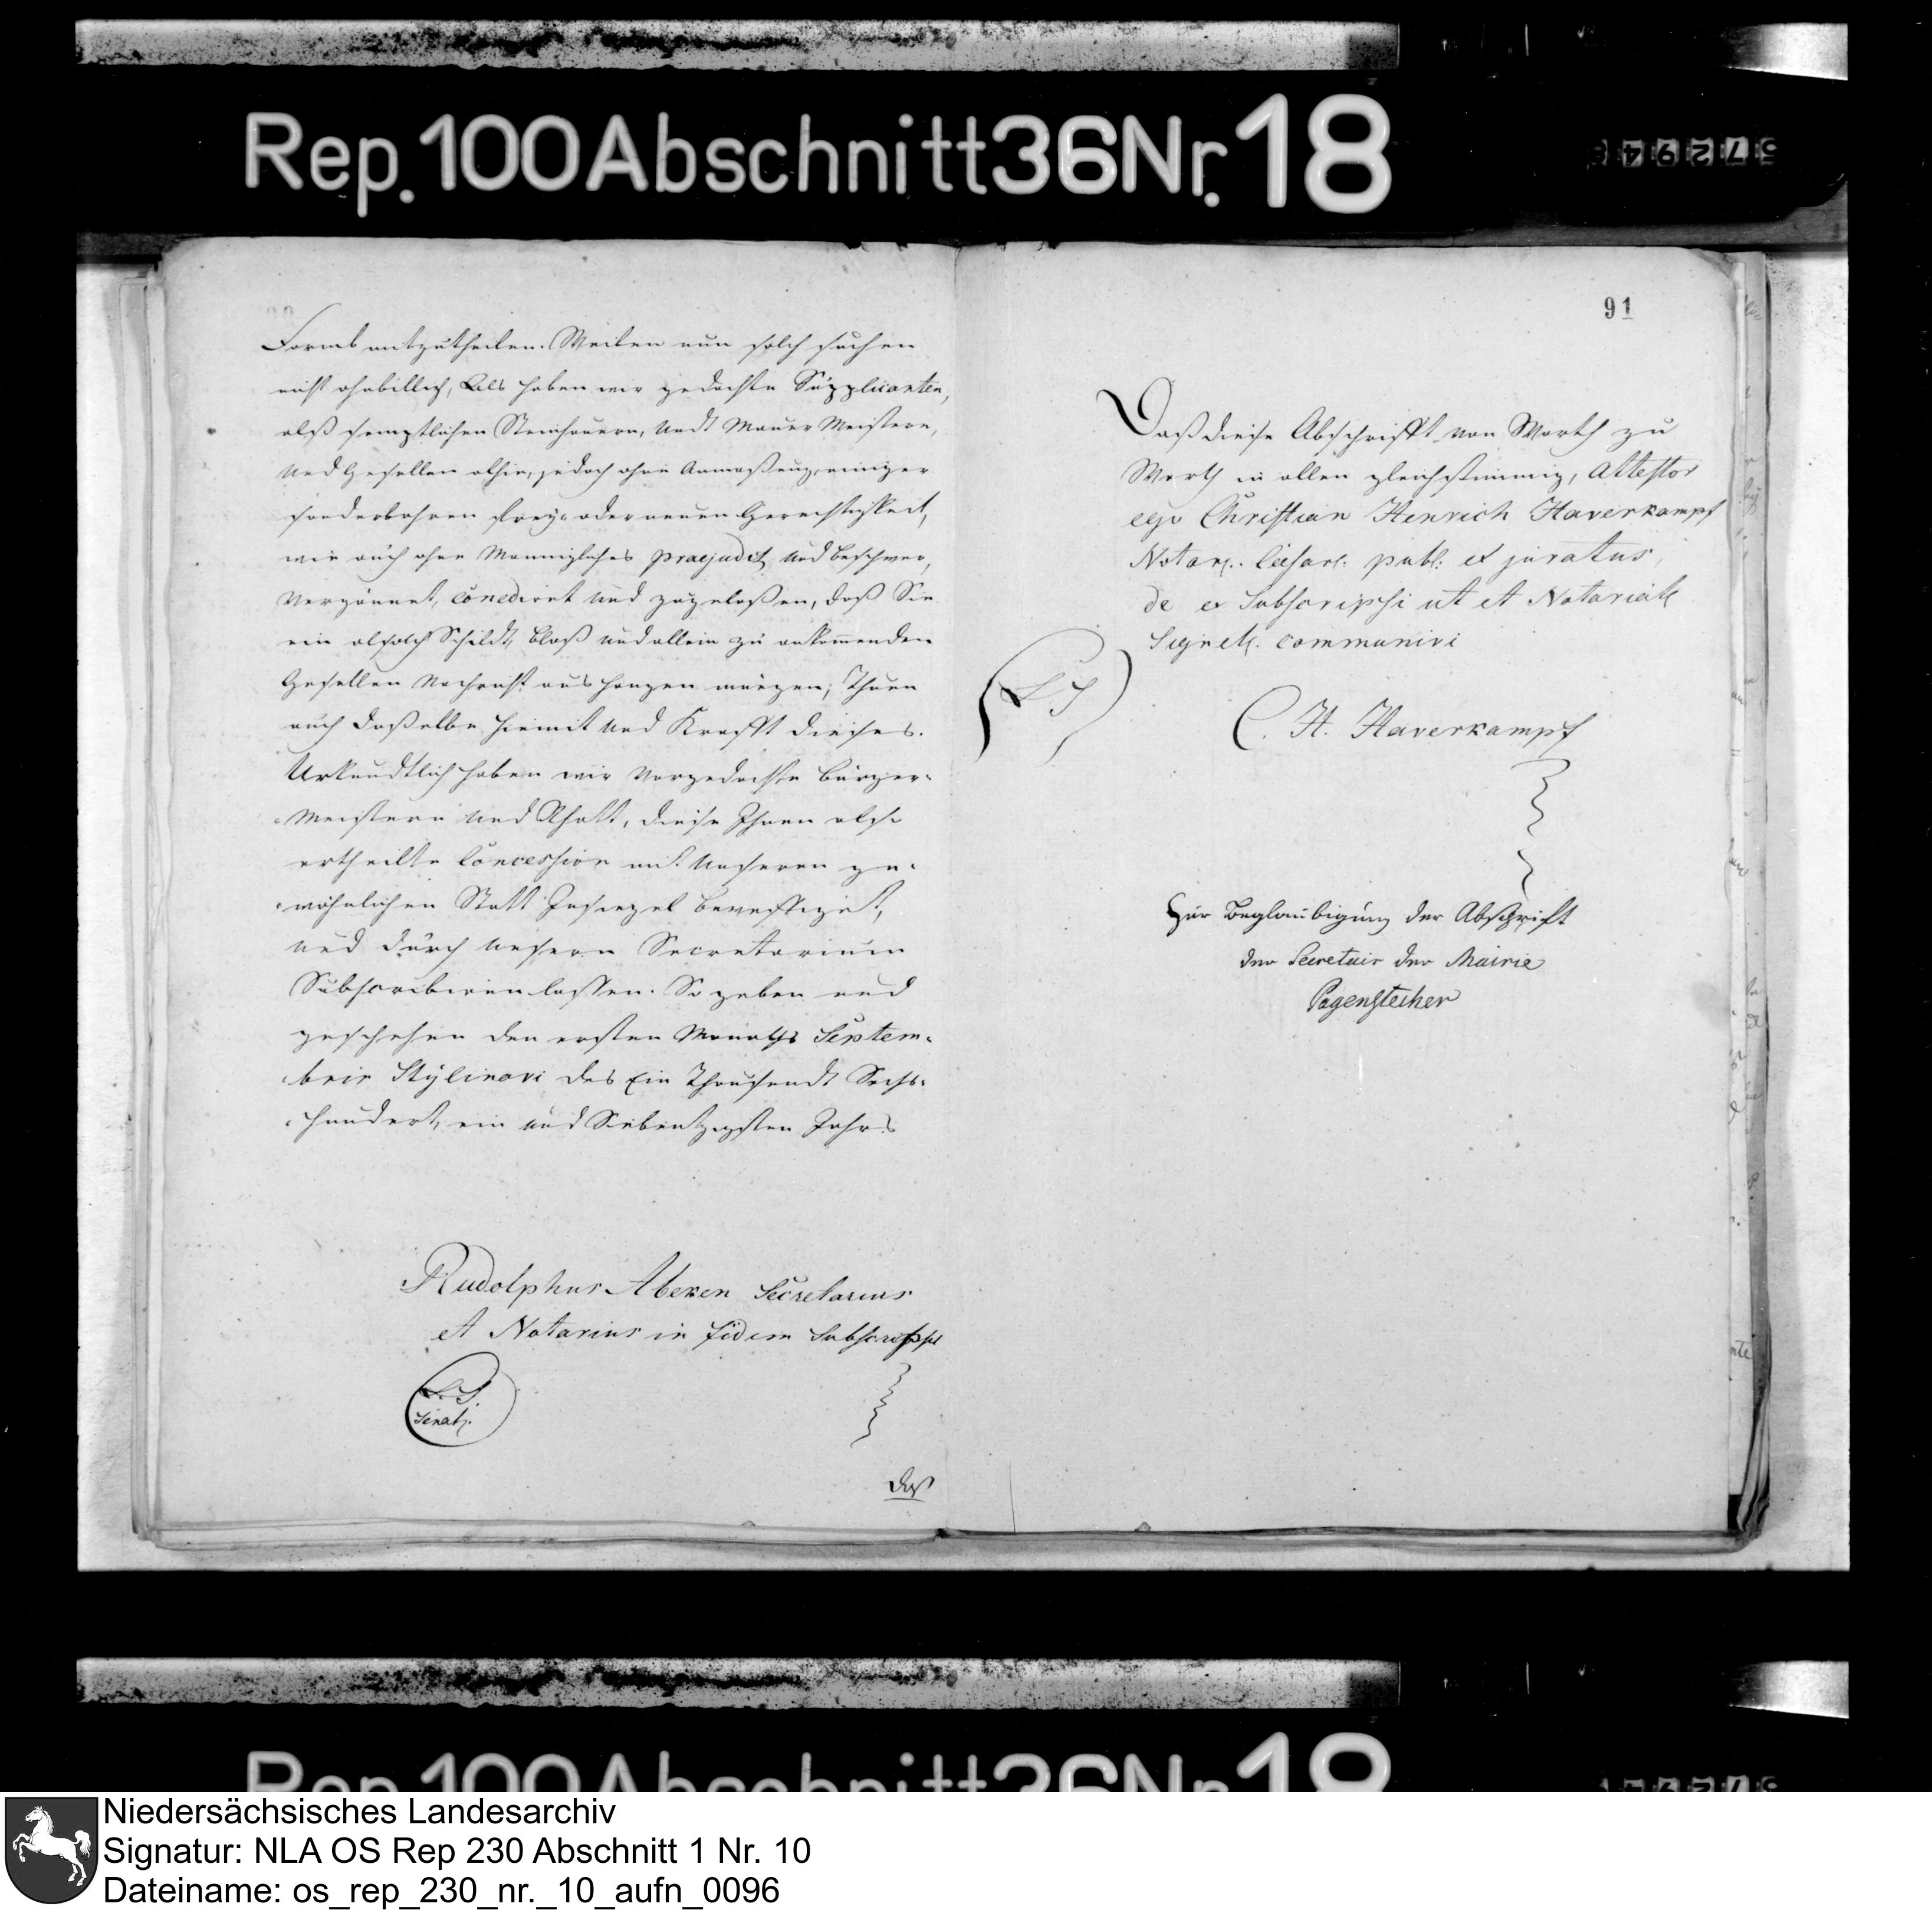 Rep. 100 Abschnitt 36 Nr. 18
572943
Formb mitzutheilen. Weilen nun solch suchen
nicht ohnbillich, Als haben wir gedachte Supplicanten,
alß semptlichen Steinhauern, undt Mauer Meistern,
und Gesellen alhie, jedoch ohne Anmaßung, einiger
sonderbahren frey- oder neuen Gerechtigkeit,
wie auch ohne Männigliches praejuditz und beschwer,
vergönnet, concediret und zugelaßen, daß Sie
ein alsolch Schildt, bloß und allein zu ankommenden
Gesellen Nachricht aushangen mögen; Thuen
auch daßelbe hiemit und Krafft dieses.
Urkundtlich haben wir vorgedachte Bürger-
Meistere und Rhatt, diese Ihnen also
ertheilte Concession mit unseren ge-
wöhnlichen Statt Insiegel bevestiget,
und durch unsern Secretarium
Subscribiren lassen. So geben und
geschehen den ersten Monaths Septem-
bris Styli novi des Ein Thausendt Sechs-
hundert, ein und Siebentzigsten Jahrs
Rudolphus Abeken Secretarius
et Notarius in fidem Subscripsi
L. S.
Senat.
Daß
91
Daß diese Abschrifft von Worth zu
Worth in allen gleichstimmig, attestor
ego Christian Henrich Haverkampf
Notar. Caesar. publ. et juratus,
de et Subscripsi ut et Notariat
Signet. communivi
L S
C. H. Haverkampf
Zur Beglaubigung der Abschrift
der Secretair der Mairie
Pagenstecher
Rep. 100 Abschnitt 36 Nr. 18
Niedersächsisches Landesarchiv
Signatur: NLA OS Rep 230 Abschnitt 1 Nr. 10
Dateiname: os_rep_230_nr._10_aufn_0096